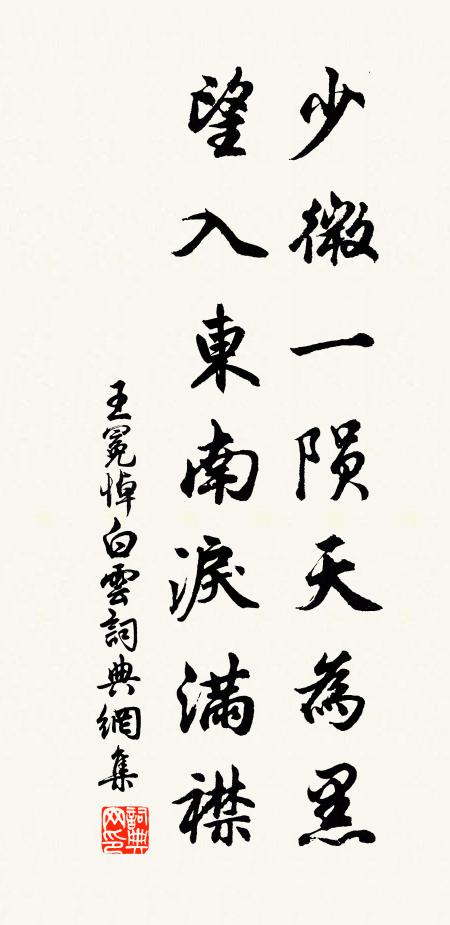 少微一陨天為黑
望入東南淚滿襟
王冕悼白雲詞典網集
詞典網印